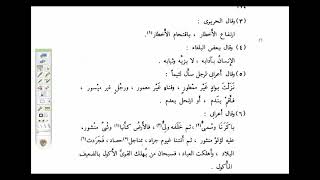 (٣) وقال الحريرى :
ارتفاع الأخطار ، باقتحام الأخطار
(٤) وقال بعض البلغاء :
الإنسان بآدابه ، لا بزيّه وثيابه .
(٥) وقال أعرابى لرجل سأل لئيماً :
نزلت بواد غير ممطور ، وفناء غير معمور ، ورجل غير ميسور ،
فأقم بندم ، أو ارتحل بعدم .
(٦) وقال أعرابى :
باكرنا وسمىّ ، ثم خلفه ولىّ ، فالأرض كأنها منشور ،
عليه لؤلؤ منثور ، ثم أتتنا غيوم جراد ، بمناجل حصاد ، فجردت
البلاد ، وأهلكت العباد ، فسبحان من يهلك القوىّ الأكول بالضعيف
المأكول .